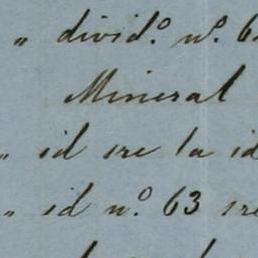 " divid.º n.º 6
Mineral
" id sre la id
" id n.º 63 sre